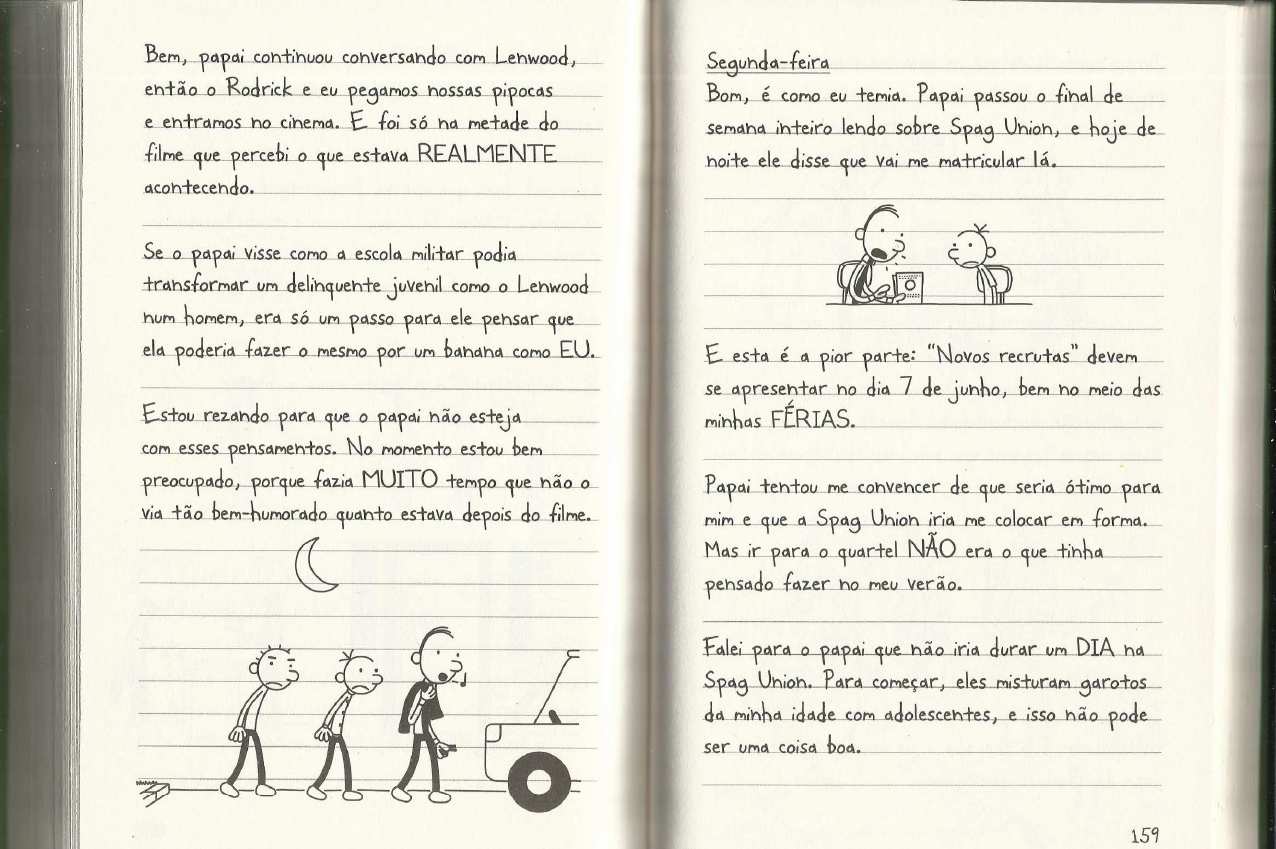 Bem, papai continuou conversando com Lenwood,
então o Rodrick e eu pegamos nossas pipocas
e entramos no cinema. E foi só na metade do
filme que percebi o que estava REALMENTE
acontecendo.
Se o papai visse como a escola militar podia
transformar um delinquente juvenil como o Lenwood
num homem, era só um passo para ele pensar que
ela poderia fazer o mesmo por um banana como EU.
Estou rezando para que o papai não esteja
com esses pensamentos. No momento estou bem
preocupado, porque fazia MUITO tempo que não o
via tão bem-humorado quanto estava depois do filme.
Segunda-feira
Bom, é como eu temia. Papai passou o final de
semana inteiro lendo sobre Spag Union, e hoje de
noite ele disse que vai me matricular lá.
E esta é a pior parte: "Novos recrutas" devem
se apresentar no dia 7 de junho, bem no meio das
minhas FÉRIAS.
Papai tentou me convencer de que seria ótimo para
mim e que a Spag Union iria me colocar em forma.
Mas ir para o quartel NÃO era o que tinha
pensado fazer no meu verão.
Falei para o papai que não iria durar um DIA na
Spag Union. Para começar, eles misturam garotos
da minha idade com adolescentes, e isso não pode
ser uma coisa boa.
159